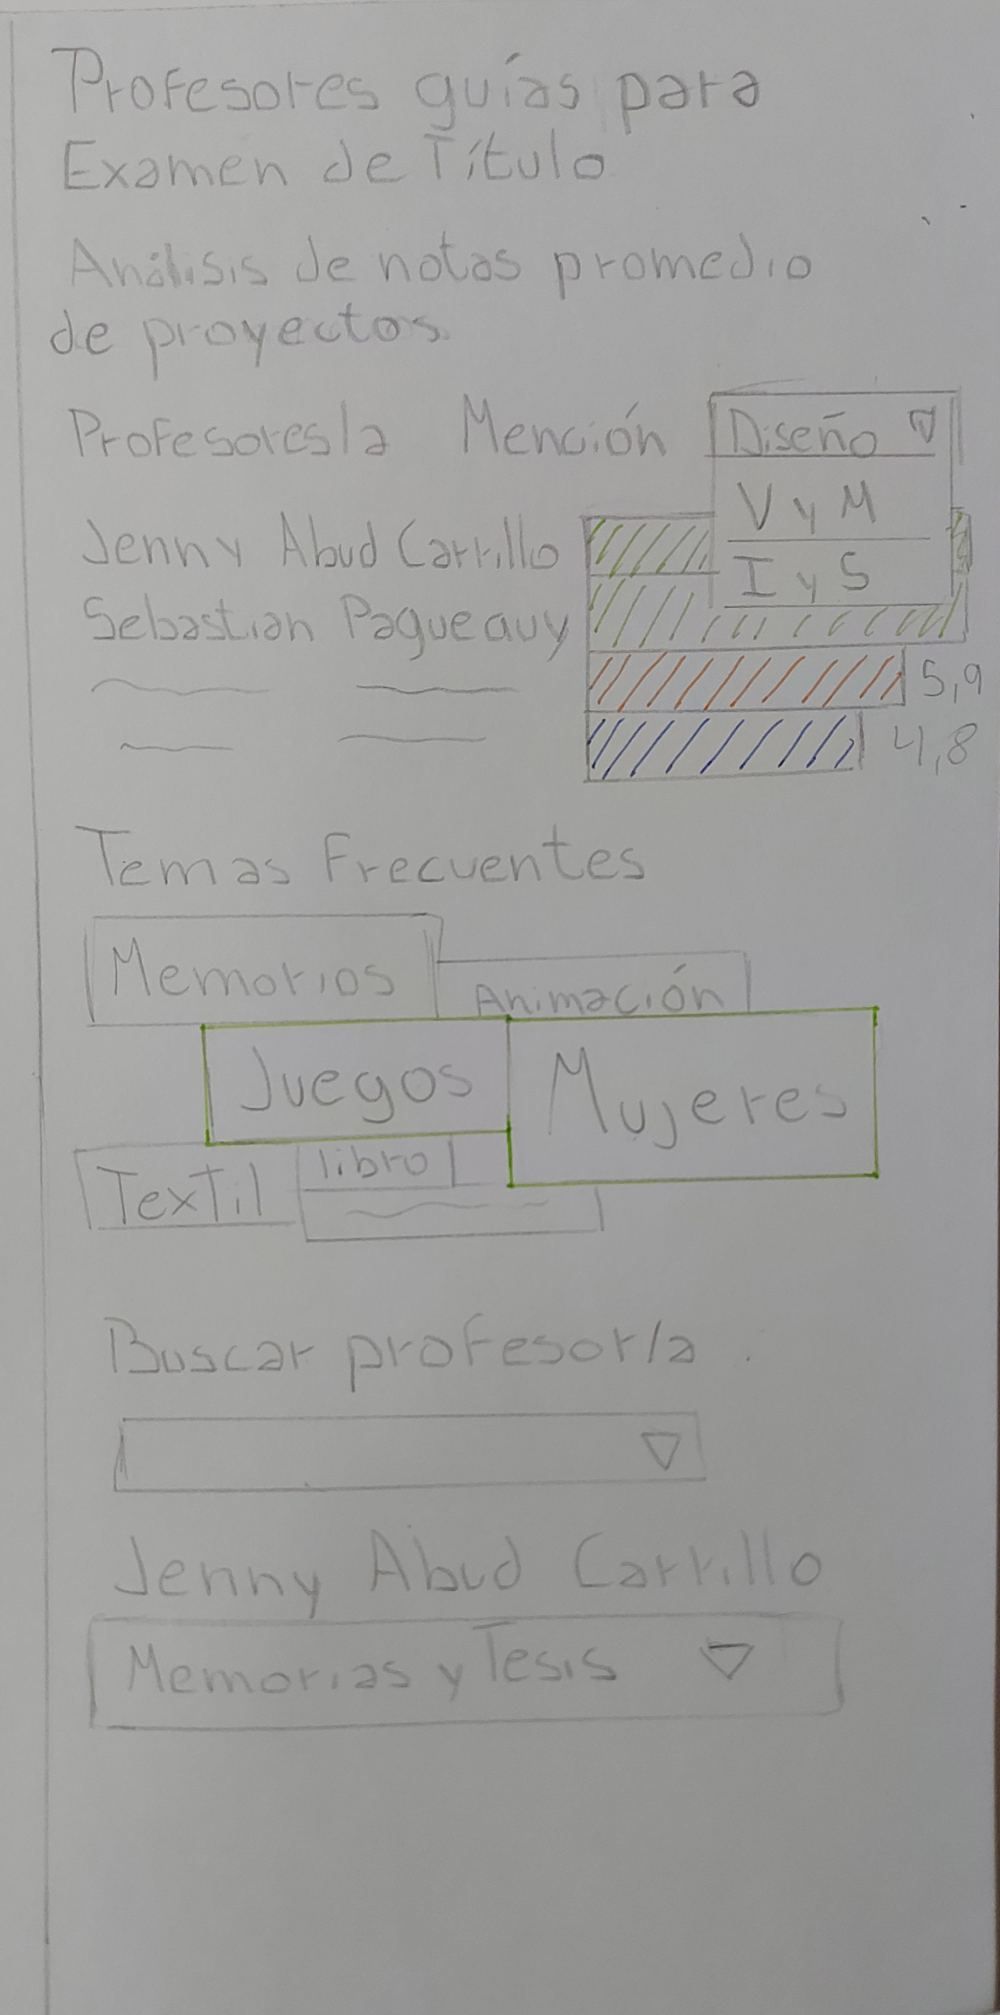 Profesores guías para
Examen de Título
Análisis de notas promedio
de proyectos.
Profesores/a Mención Diseño
V y M
Jenny Abud Carrillo
I y S
Sebastian Pagueguy
5,9
4,8
Temas Frecuentes
Memorios
Animación
Juegos Mujeres
libro
Textil
Buscar profesor/a.
Jenny Abud Carrillo
Memorias y Tesis